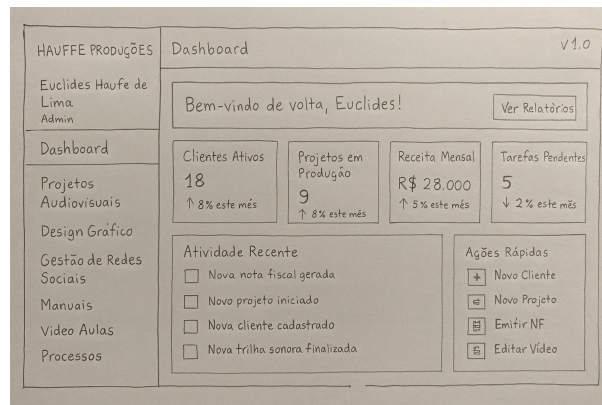 HAUFFE PRODUÇÕES
Euclides Haufe de
Lima
Admin
Dashboard
Projetos
Audiovisuais
Design Gráfico
Gestão de Redes
Sociais
Manuais
Video Aulas
Processos
Dashboard
V 1.0
Bem-vindo de volta, Euclides!
Ver Relatórios
Clientes Ativos
18
↑ 8% este mês
Projetos em
Produção
9
↑ 8% este mês
Receita Mensal
R$ 28.000
↑ 5% este mês
Tarefas Pendentes
5
↓ 2% este mês
Atividade Recente
Nova nota fiscal gerada
Novo projeto iniciado
Nova cliente cadastrado
Nova trilha sonora finalizada
Ações Rápidas
+ Novo Cliente
Novo Projeto
Emitir NF
Editar Vídeo